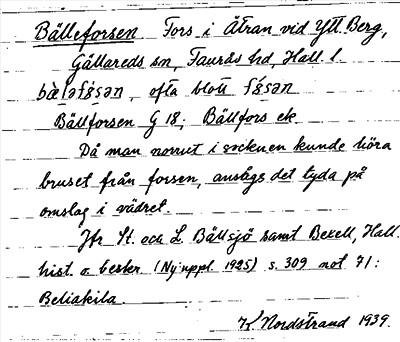 Bälleforsen. Fors i Ätran vid Ytt. Berg,
Gällareds sn, Faurås hd, Hall. l.
bæ̀lafåsən, ofta blott fåsən
Bällforsen G 18; Bällfors ek
Då man norrut i socknen kunde höra
bruset från forsen, ansågs det tyda på
omslag i vädret.
Jfr St. och L. Bällsjö samt Bexell, Hall.
hist. o. beskr. (Ny uppl. 1925) s. 309 not 71:
Beliakila
K Nordstrand 1939.